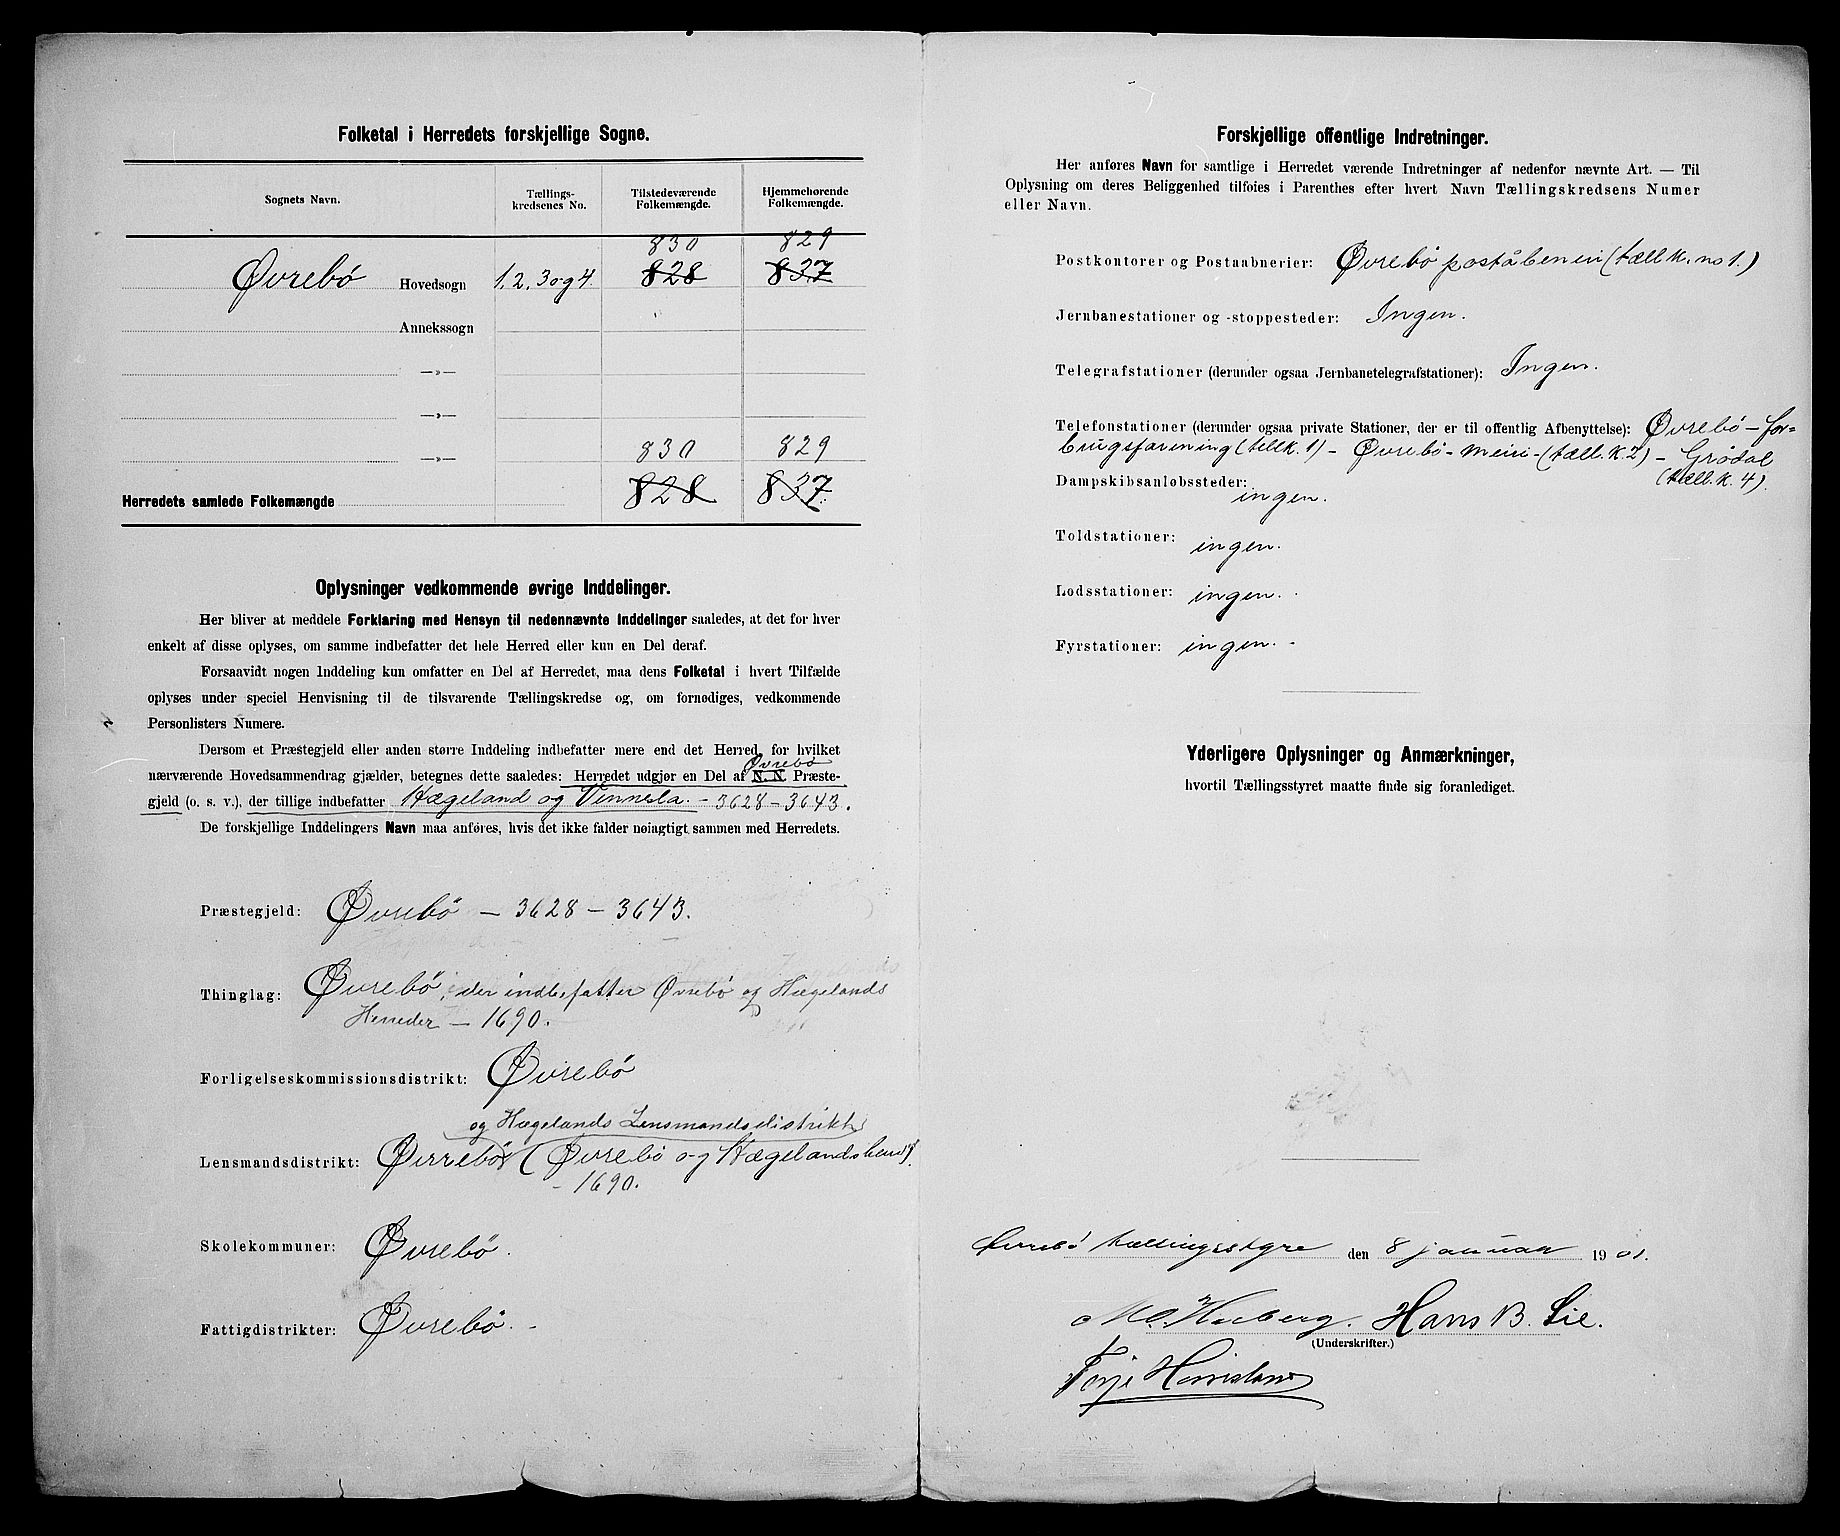 Folketal i Herredets forskjellige Sogne.
Sognets Navn.
Tællings-
kredsenes No.
Tilstedeværende
Folkemængde.
Hjemmehørende
Folkemængde.
830 829
Øvrebö Hovedsogn 1, 2, 3 og 4. 828 837
Annekssogn
—»—
—»—
830 829
—»—
828 837
Herredets samlede Folkemængde
Oplysninger vedkommende øvrige Inddelinger.
Her bliver at meddele Forklaring med Hensyn til nedennævnte Inddelinger saaledes, at det for hver
enkelt af disse oplyses, om samme indbefatter det hele Herred eller kun en Del deraf.
Forsaavidt nogen Inddeling kun omfatter en Del af Herredet, maa dens Folketal i hvert Tilfælde
oplyses under speciel Henvisning til de tilsvarende Tællingskredse og, om fornødiges, vedkommende
Personlisters Numere.
Dersom et Præstegjeld eller anden større Inddeling indbefatter mere end det Herred, for hvilket
Øvrebö
nærværende Hovedsammendrag gjælder, betegnes dette saaledes: Herredet udgjør en Del af N. N. Præste-
gjeld (o. s. v.), der tillige indbefatter Hægeland og Vennesla. - 3628 - 3643.
De forskjellige Inddelingers Navn maa anføres, hvis det ikke falder nøiagtigt sammen med Herredets.
Præstegjeld: Øvrebö — 3628 — 3643.
Thinglag: Øvrebö, der indbefatter Øvrebö og Hægelands
Herreder — 1690.
Forligelseskommissionsdistrikt: Øvrebö
og Hægelands Lensmandsdistrikt
Lensmandsdistrikt: Øvrebö (Øvrebö og Hægelands
- 1690.
Skolekommuner: Øvrebö.
Fattigdistrikter: Øvrebö. -
Forskjellige offentlige Indretninger.
Her anføres Navn for samtlige i Herredet værende Indretninger af nedenfor nævnte Art. — Til
Oplysning om deres Beliggenhed tilføies i Parenthes efter hvert Navn Tællingskredsens Numer
eller Navn.
Postkontorer og Postaabnerier: Øvrebö poståbneri (tællk. no 1.)
Jernbanestationer og -stoppesteder: Ingen.
Telegrafstationer (derunder ogsaa Jernbanetelegrafstationer): Ingen.
Telefonstationer (derunder ogsaa private Stationer, der er til offentlig Afbenyttelse): Øvrebö - for-
brugsforening (tællk. 1) - Øvrebö - meiri - (tæll. k. 2) - Grödal
(tæll. k. 4).
Dampskibsanløbssteder: ingen.
Toldstationer: ingen.
Lodsstationer: ingen.
Fyrstationer: ingen. -
Yderligere Oplysninger og Anmærkninger,
hvortil Tællingsstyret maatte finde sig foranlediget.
Øvrebö tællingsstyre den 8 januar 1901.
Hans B. Lie.
(Underskrifter.)
Terje